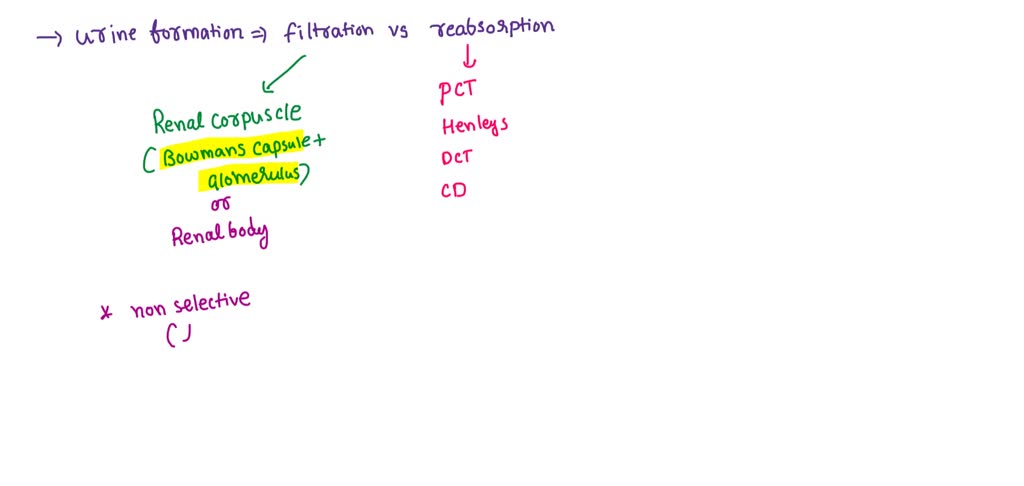 → urine formation ⇒ filtration vs reabsorption
Renal corpuscle
(Bowmans capsule +
glomerulus)
or
Renal body
* non selective
( )
PCT
Henleys
DCT
CD